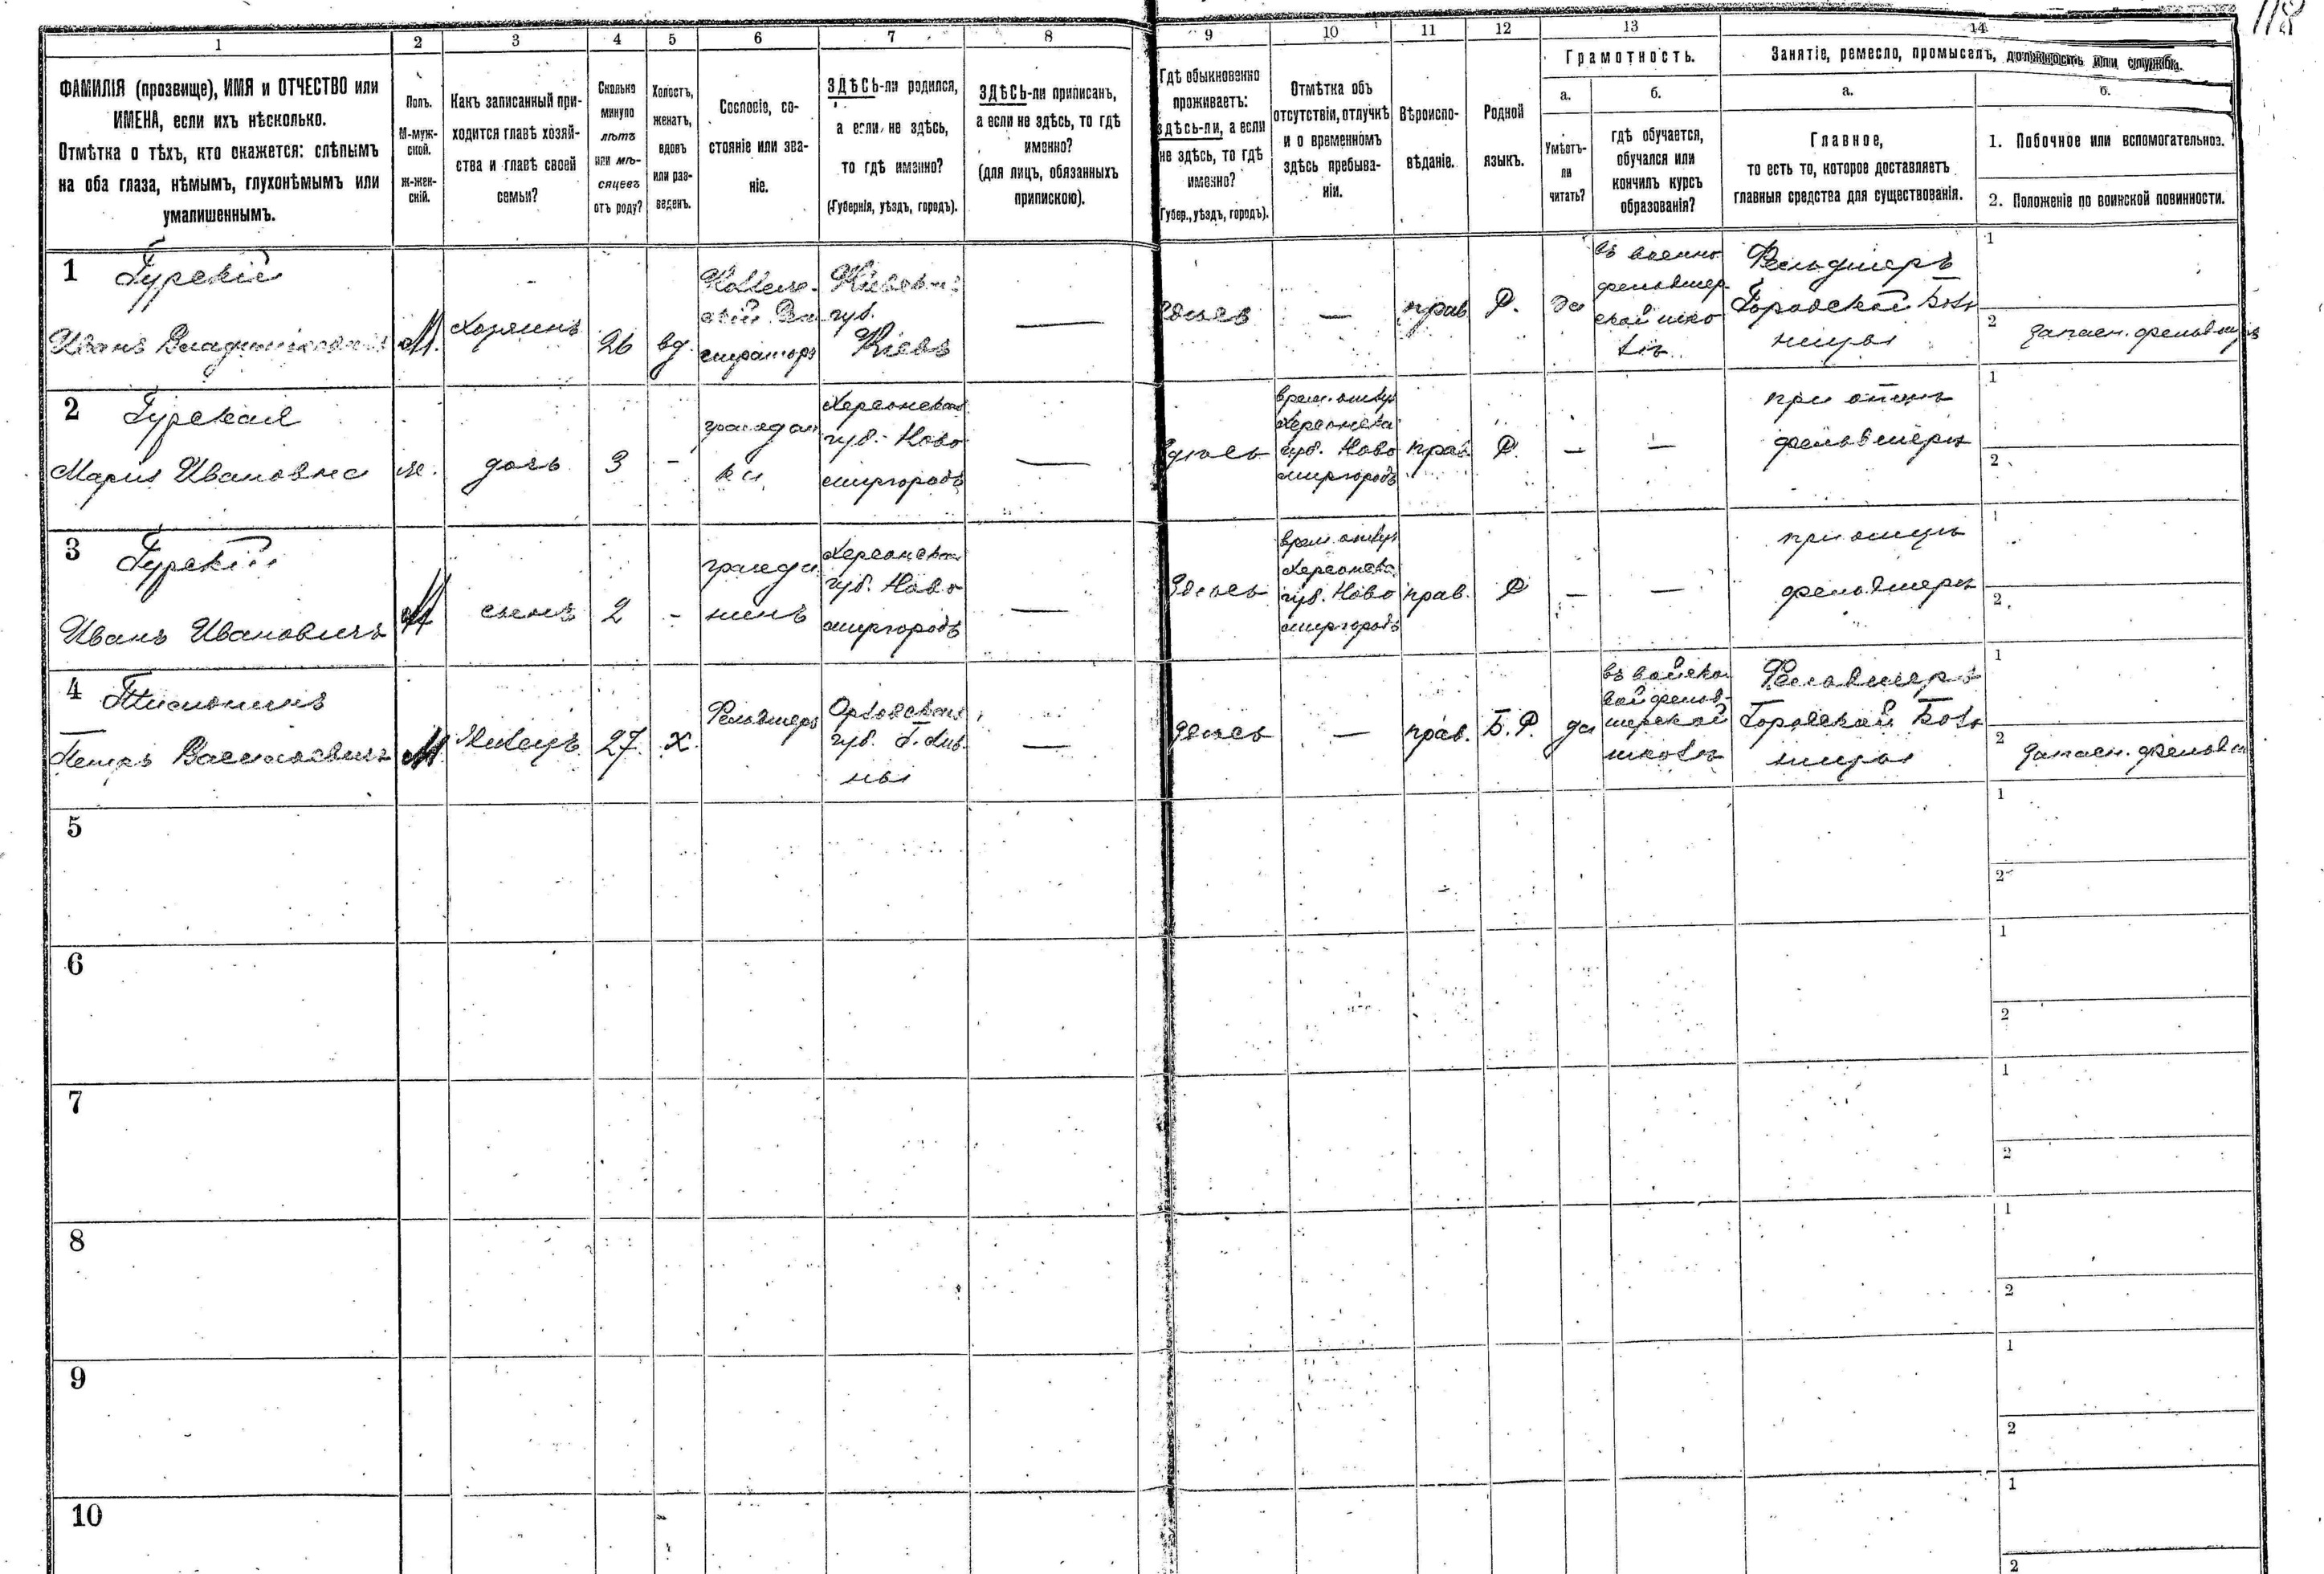 118
1 2 3 4 5 6 7 8 9 10 11 12 13 14
ФАМИЛІЯ (прозвище), ИМЯ и ОТЧЕСТВО или
ИМЕНА, если ихъ нѣсколько.
Отмѣтка о тѣхъ, кто окажется: слѣпымъ
на оба глаза, нѣмымъ, глухонѣмымъ или
умалишеннымъ.
Полъ.
М-муж-
ской.
ж-жен-
скій.
Какъ записанный при-
ходится главѣ хозяй-
ства и главѣ своей
семьи?
Сколько
минуло
лѣтъ
или мѣ-
сяцевъ
отъ роду?
Холостъ,
женатъ,
вдовъ
или раз-
веденъ.
Сословіе, со-
стояніе или зва-
ніе.
ЗДѢСЬ-ли родился,
а если не здѣсь,
то гдѣ именно?
(Губернія, уѣздъ, городъ).
ЗДѢСЬ-ли приписанъ,
а если не здѣсь, то гдѣ
именно?
(для лицъ, обязанныхъ
припискою).
Гдѣ обыкновенно
проживаетъ:
здѣсь-ли, а если
не здѣсь, то гдѣ
именно?
(Губер., уѣздъ, городъ).
Отмѣтка объ
отсутствіи, отлучкѣ
и о временномъ
здѣсь пребыва-
ніи.
Вѣроиспо-
вѣданіе.
Родной
языкъ.
Грамотность.
а.
Умѣетъ-
ли
читать?
б.
гдѣ обучается,
обучался или
кончилъ курсъ
образованія?
Занятіе, ремесло, промыселъ, должность или служба.
а.
Главное,
то есть то, которое доставляетъ
главныя средства для существованія.
б.
1. Побочное или вспомогательное.
2. Положеніе по воинской повинности.
1 Гурскій
Иванъ Владиміровичъ
М.
хозяинъ
26
вд.
Коллеж-
скій Ре
гистраторъ
Кіевск.
губ.
Кіевъ
—
здѣсь
—
прав
Р.
да
въ военно
фельдшер-
ской шко
лѣ
Фельдшеръ
Городской Боль
ницы
1
2 запасн. фельдшеръ
2 Гурская
Марія Ивановна
ж.
дочь
3
-
граждан
ка
Херсонской
губ. Ново
миргородъ
—
здѣсь
врем. отлуч
Херсонска
губ. Ново
миргородъ
прав.
Р.
—
—
при отцѣ
фельдшерѣ
1
2
3 Гурскій
Иванъ Ивановичъ
М
сынъ
2
-
гражда
нинъ
Херсонской
губ. Ново
миргородъ
—
здѣсь
врем. отлуч
Херсонска
губ. Ново
миргородъ
прав.
Р
—
—
при отцѣ
фельдшерѣ
1
2
4
Петръ Васильевичъ
М
Жилецъ
27
х.
Фельдшеръ
Орловской
губ. Г. Лив-
ны
—
здѣсь
—
прав.
Б. Р.
да
въ войско
вой фельд-
шерской
школѣ
Фельдшеръ
Городской Боль
ницы
1
2 запасн. фельдш
5
1
2
6
1
2
7
1
2
8
1
2
9
1
2
10
1
2